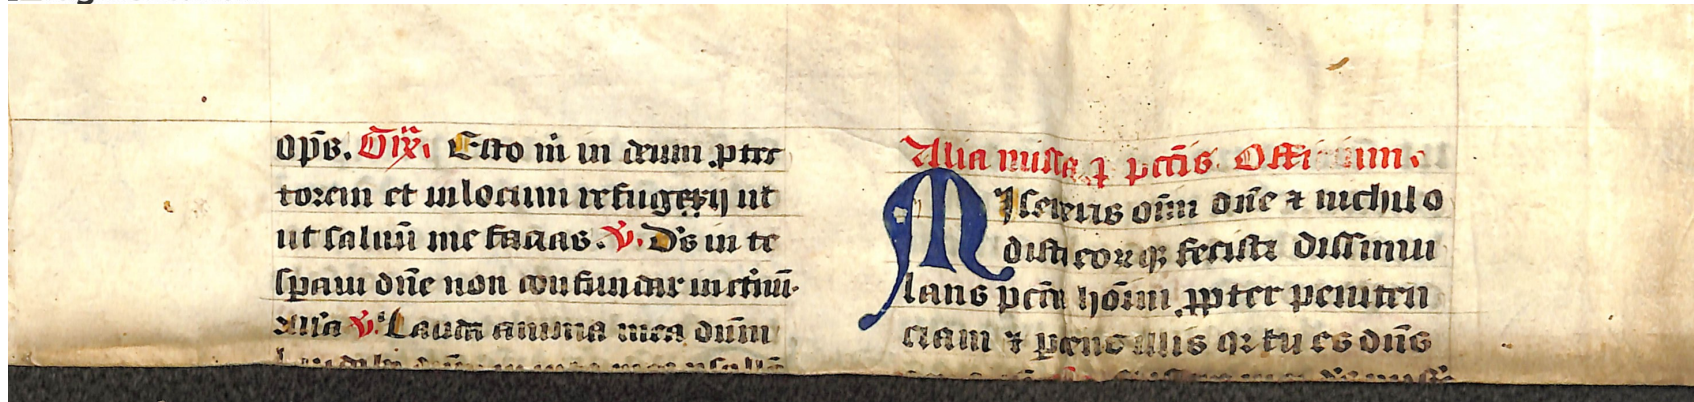 op̄s. Gͥx. Esto m̄ in deum ꝓtec
torem et in locum refugerij ut
ut saluū me facias. v̄. Ds̄ in te
sꝑaui dn̄e non confundar in et̄nū.
All'a v̄. Lauda anima mea dn̄m
Alia missa ꝓ pctīs Officium.
Misereris om̄i dn̄e ⁊ nichil o
disti eorūqꝫ fecisti dissimu
lans pctā hōim ꝓpter peniten
ciam ⁊ ꝑcens illis qꝛ tu es dn̄s